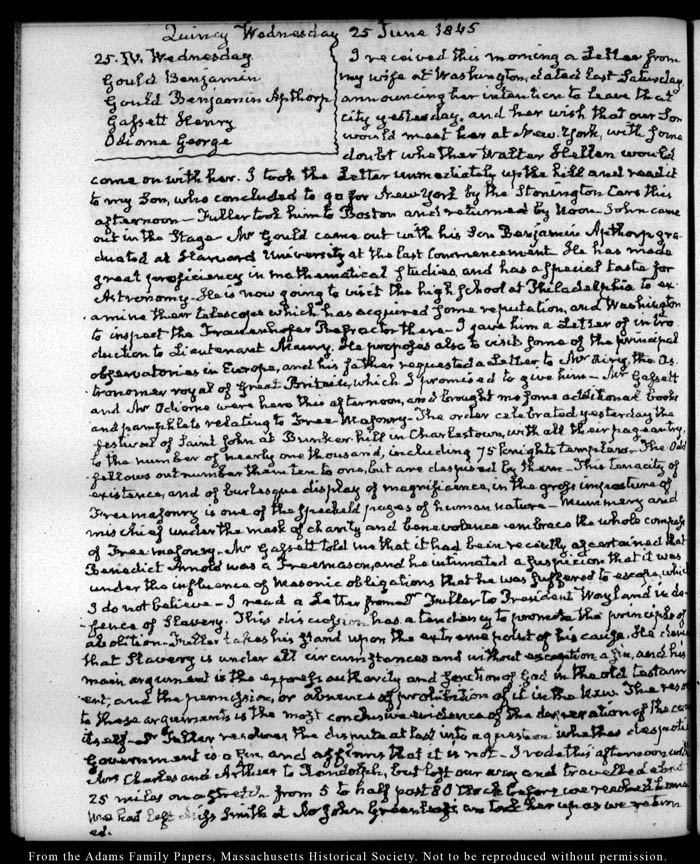 Quincy Wednesday 25 June 1845
25. IV. Wednesday
Gould Benjamin
Gould Benjamin Apthorp
Gassett Henry
Odiorne George
I received this morning a Letter from
my wife at Washington, dated last Saturday
announcing her intention to leave that
city yesterday, and her wish that our Son
would meet her at New-York, with some
doubt whether Walter Hellen would
come on with her. I took the Letter immediately up the hill and read it
to my Son, who concluded to go for New York by the Stonington Cars this
afternoon — Fuller took him to Boston and returned by Noon — John came
out in the Stage. Mr Gould came out with his Son Benjamin Apthorp gra-
duated at Harvard University at the last Commencement. He has made
great proficiency in mathematical studies, and has a special taste for
Astronomy — He is now going to visit the high school at Philadelphia to ex-
amine their telescope which has acquired some reputation, and Washington
to inspect the Frauenhofer Refractor there — I gave him a Letter of intro
duction to Lieutenant Maury. He proposes also to visit some of the principal
observatories in Europe, and his father requested a Letter to Mr Airy, the As-
tronomer royal of Great Britain, which I promised to give him — Mr Gassett
and Mr Odiorne were here this afternoon, and brought me some additional books
and pamphlets relating to Free Masonry — The order celebrated yesterday the
festival of Saint John at Bunker hill in Charlestown, with all their pageantry,
to the number of nearly one thousand, including 75 knights templars — The Odd
fellows outnumber them ten to one, but are despised by them — This tenacity of
existence, and of burlesque display of magnificence, in the gross imposture of
Freemasonry is one of the speckled pages of human nature — Mummery and
mischief under the mask of charity and benevolence embrace the whole compass
of Free masonry — Mr Gassett told me that it had been recently ascertained that
Benedict Arnold was a Freemason, and he intimated a suspicion that it was
under the influence of Masonic obligations that he was suffered to escape, which
I do not believe — I read a Letter from Dr Fuller to President Wayland in de-
fence of Slavery. This discussion has a tendency to promote the principle of
abolition. Fuller takes his stand upon the extreme point of his cause. He
that Slavery is under all circumstances and without exception a sin, and his
main argument is the express authority and sanction of God in the old testam
ent, and the permission, or absence of prohibition of it in the New. The
to these arguments is the most conclusive evidence of the desperation of the
itself — Dr Fuller resolves the dispute at last into a question whether despotic
Government is a sin, and affirms that it is not — I rode this afternoon with
Mrs Charles and Arthur to Randolph, but lost our way and travelled about
25 miles on a stretch from 5 to half past 8 O'Clock before we reached home
We had left Miss Smith at Mr John Greenleaf's and took her up as we return
ed.
From the Adams Family Papers, Massachusetts Historical Society. Not to be reproduced without permission.